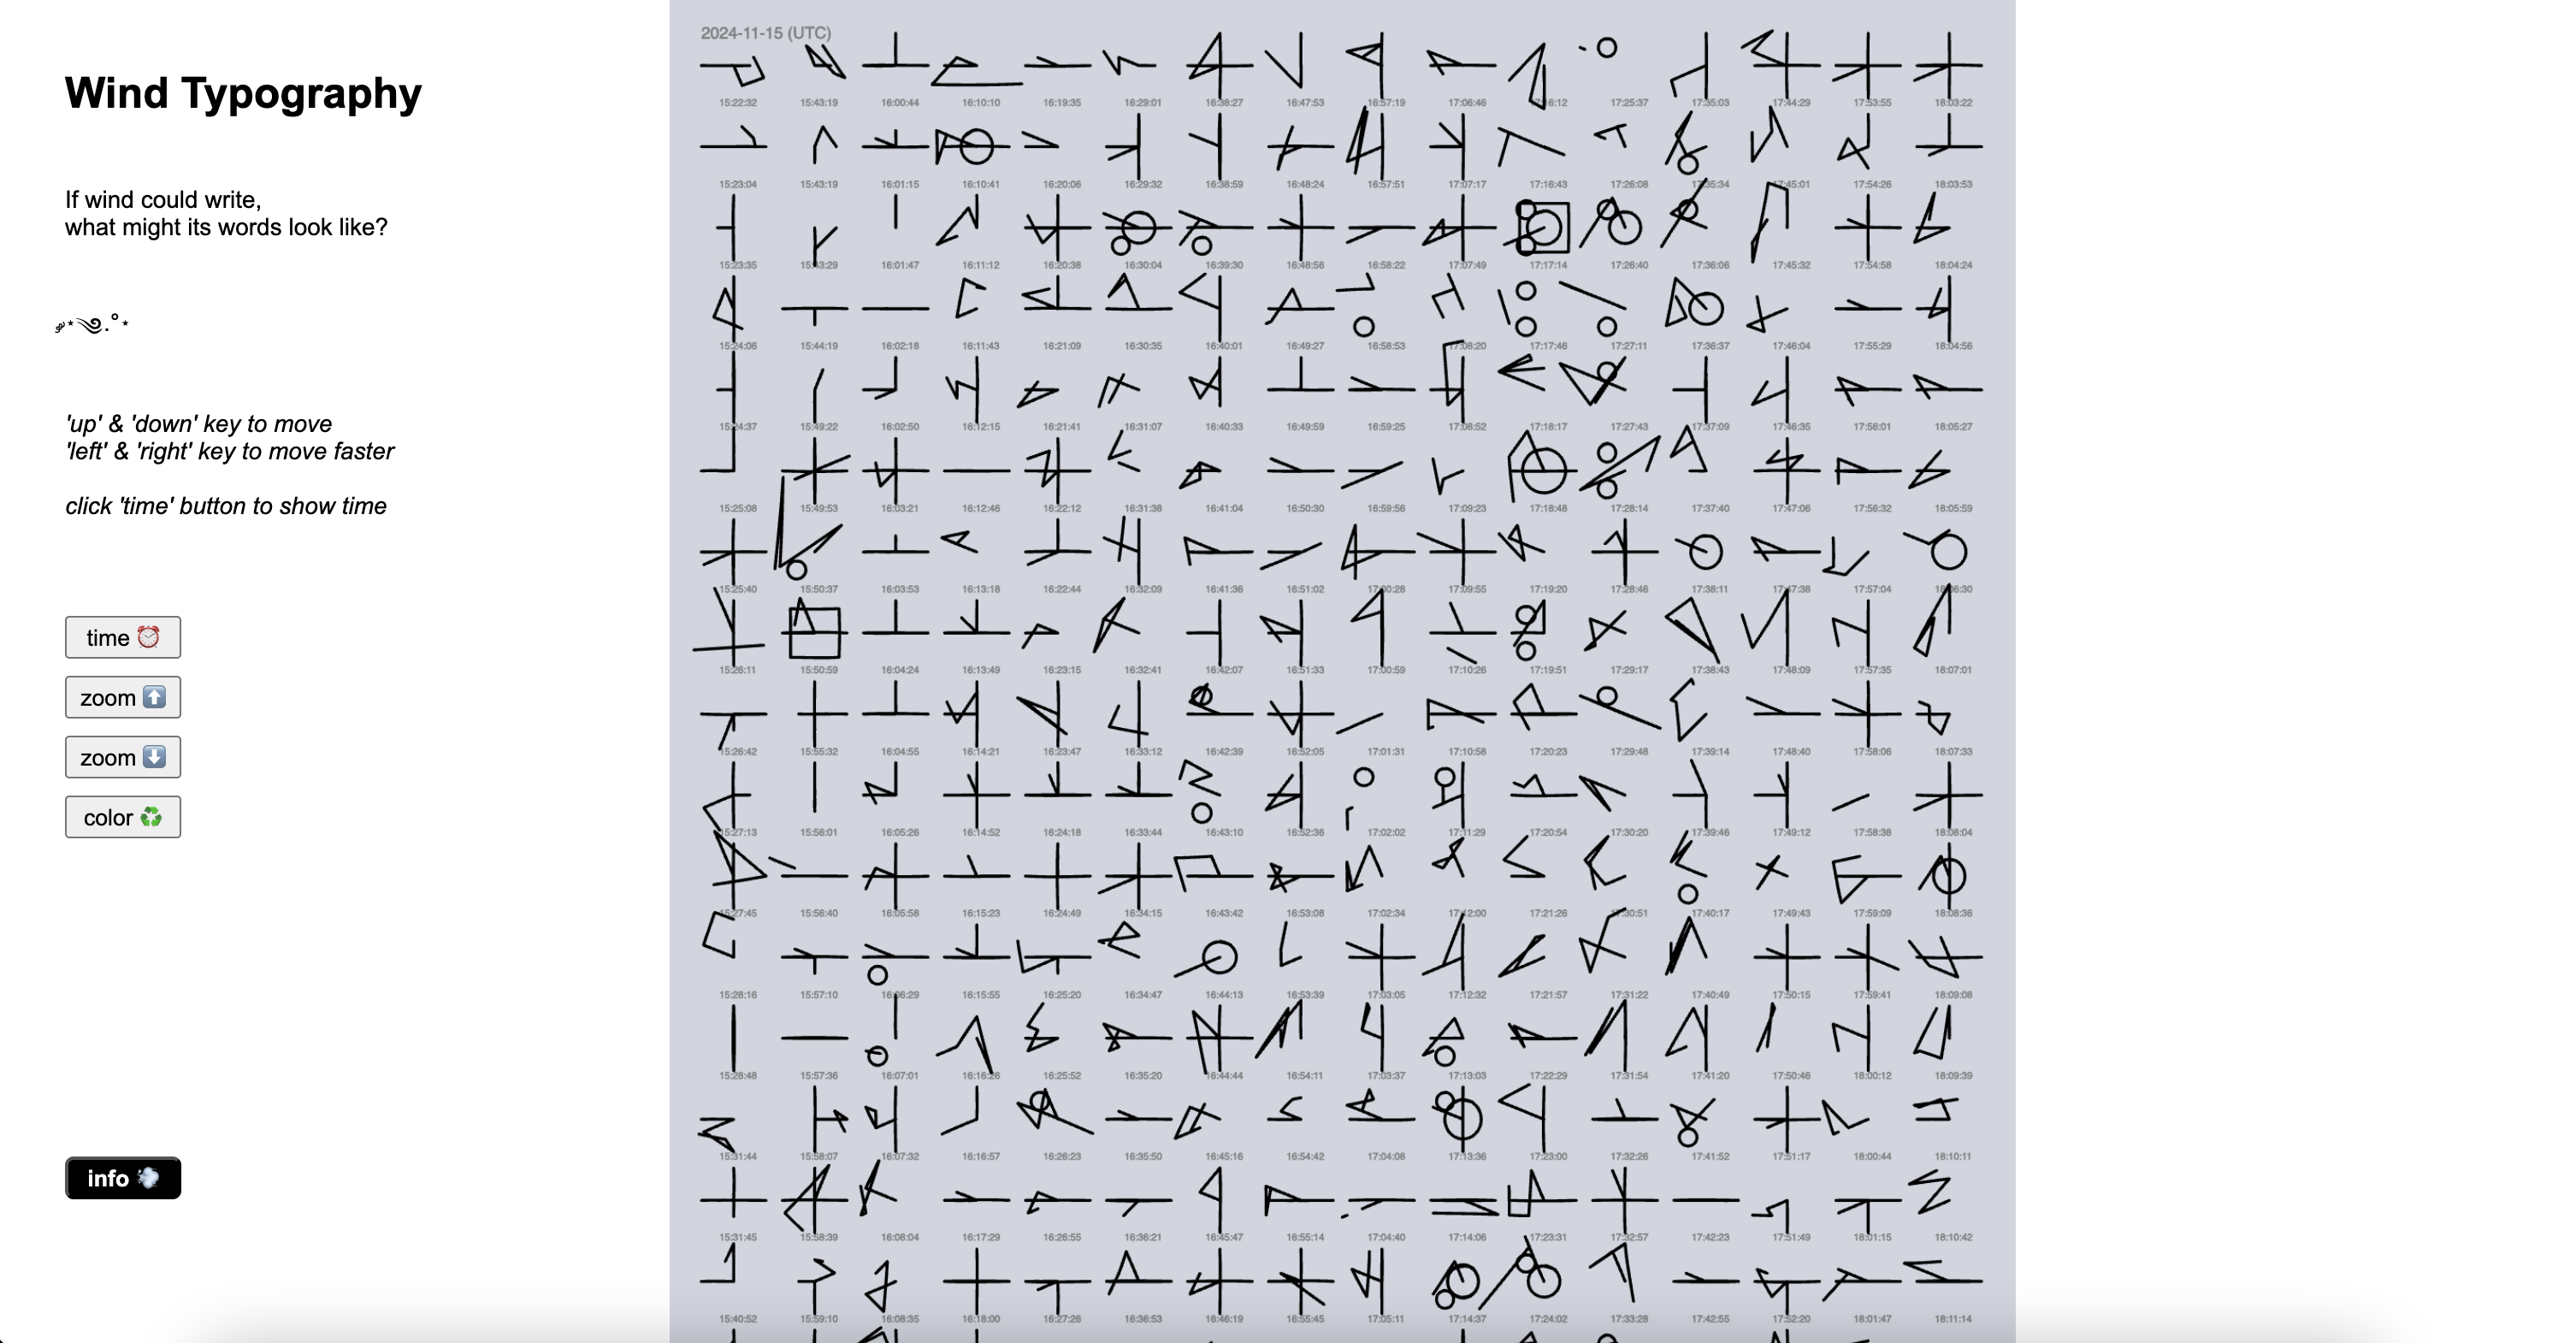 Wind Typography
If wind could write,
what might its words look like?
'up' & 'down' key to move
'left' & 'right' key to move faster
click 'time' button to show time
time ⏰
zoom ⬆️
zoom ⬇️
color ♻️
info 💨
2024-11-15 (UTC)
15:22:32 15:43:19 16:00:44 16:10:10 16:19:35 16:29:01 16:38:27 16:47:53 16:57:19 17:06:46 17:16:12 17:25:37 17:35:03 17:44:29 17:53:55 18:03:22
15:23:04 15:43:19 16:01:15 16:10:41 16:20:06 16:29:32 16:38:59 16:48:24 16:57:51 17:07:17 17:16:43 17:26:08 17:35:34 17:45:01 17:54:26 18:03:53
15:23:35 15:43:29 16:01:47 16:11:12 16:20:38 16:30:04 16:39:30 16:48:56 16:58:22 17:07:49 17:17:14 17:26:40 17:36:06 17:45:32 17:54:58 18:04:24
15:24:06 15:44:19 16:02:18 16:11:43 16:21:09 16:30:35 16:40:01 16:49:27 16:58:53 17:08:20 17:17:46 17:27:11 17:36:37 17:46:04 17:55:29 18:04:56
15:24:37 15:49:22 16:02:50 16:12:15 16:21:41 16:31:07 16:40:33 16:49:59 16:59:25 17:08:52 17:18:17 17:27:43 17:37:09 17:46:35 17:56:01 18:05:27
15:25:08 15:49:53 16:03:21 16:12:46 16:22:12 16:31:38 16:41:04 16:50:30 16:59:56 17:09:23 17:18:48 17:28:14 17:37:40 17:47:06 17:56:32 18:05:59
15:25:40 15:50:37 16:03:53 16:13:18 16:22:44 16:32:09 16:41:36 16:51:02 17:00:28 17:09:55 17:19:20 17:28:46 17:38:11 17:47:38 17:57:04 18:06:30
15:26:11 15:50:59 16:04:24 16:13:49 16:23:15 16:32:41 16:42:07 16:51:33 17:00:59 17:10:26 17:19:51 17:29:17 17:38:43 17:48:09 17:57:35 18:07:01
15:26:42 15:55:32 16:04:55 16:14:21 16:23:47 16:33:12 16:42:39 16:52:05 17:01:31 17:10:58 17:20:23 17:29:48 17:39:14 17:48:40 17:58:06 18:07:33
15:27:13 15:56:01 16:05:26 16:14:52 16:24:18 16:33:44 16:43:10 16:52:36 17:02:02 17:11:29 17:20:54 17:30:20 17:39:46 17:49:12 17:58:38 18:08:04
15:27:45 15:56:40 16:05:58 16:15:23 16:24:49 16:34:15 16:43:42 16:53:08 17:02:34 17:12:00 17:21:26 17:30:51 17:40:17 17:49:43 17:59:09 18:08:36
15:28:16 15:57:10 16:06:29 16:15:55 16:25:20 16:34:47 16:44:13 16:53:39 17:03:05 17:12:32 17:21:57 17:31:22 17:40:49 17:50:15 17:59:41 18:09:08
15:28:48 15:57:36 16:07:01 16:16:26 16:25:52 16:35:20 16:44:44 16:54:11 17:03:37 17:13:03 17:22:29 17:31:54 17:41:20 17:50:46 18:00:12 18:09:39
15:31:44 15:58:07 16:07:32 16:16:57 16:26:23 16:35:50 16:45:16 16:54:42 17:04:08 17:13:36 17:23:00 17:32:26 17:41:52 17:51:17 18:00:44 18:10:11
15:31:45 15:58:39 16:08:04 16:17:29 16:26:55 16:36:21 16:45:47 16:55:14 17:04:40 17:14:06 17:23:31 17:32:57 17:42:23 17:51:49 18:01:15 18:10:42
15:40:52 15:59:10 16:08:35 16:18:00 16:27:26 16:36:53 16:46:19 16:55:45 17:05:11 17:14:37 17:24:02 17:33:28 17:42:55 17:52:20 18:01:47 18:11:14